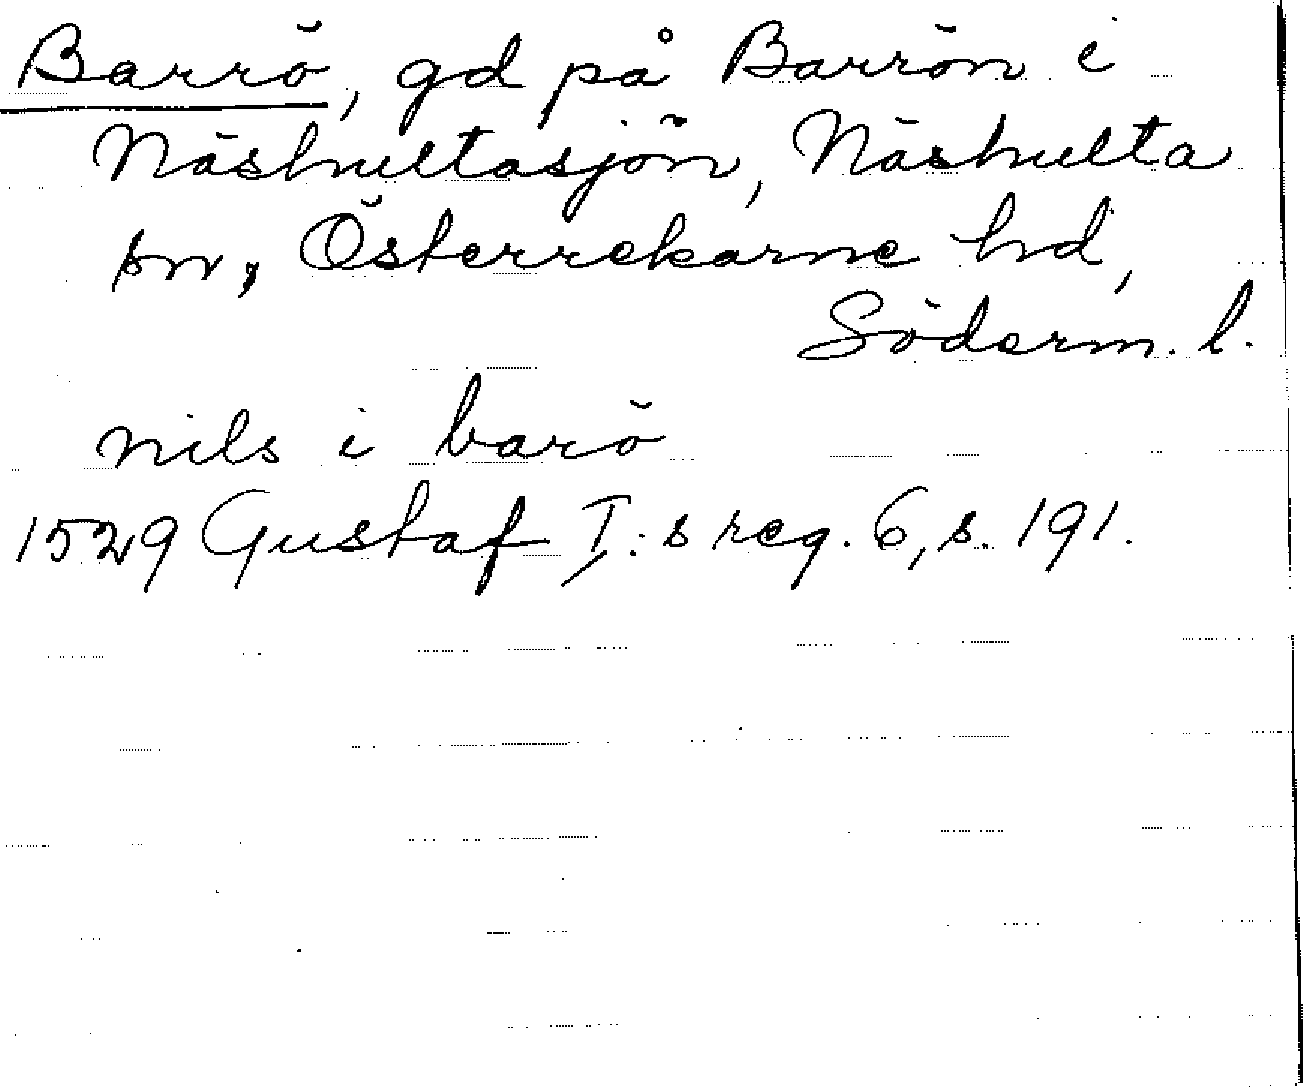 Barrö, gd på Barrön i
Näshultasjön, Näshulta
sn, Österrekarne hd,
Söderm. l.
nils i barö
1529 Gustaf I:s reg. 6, s. 191.